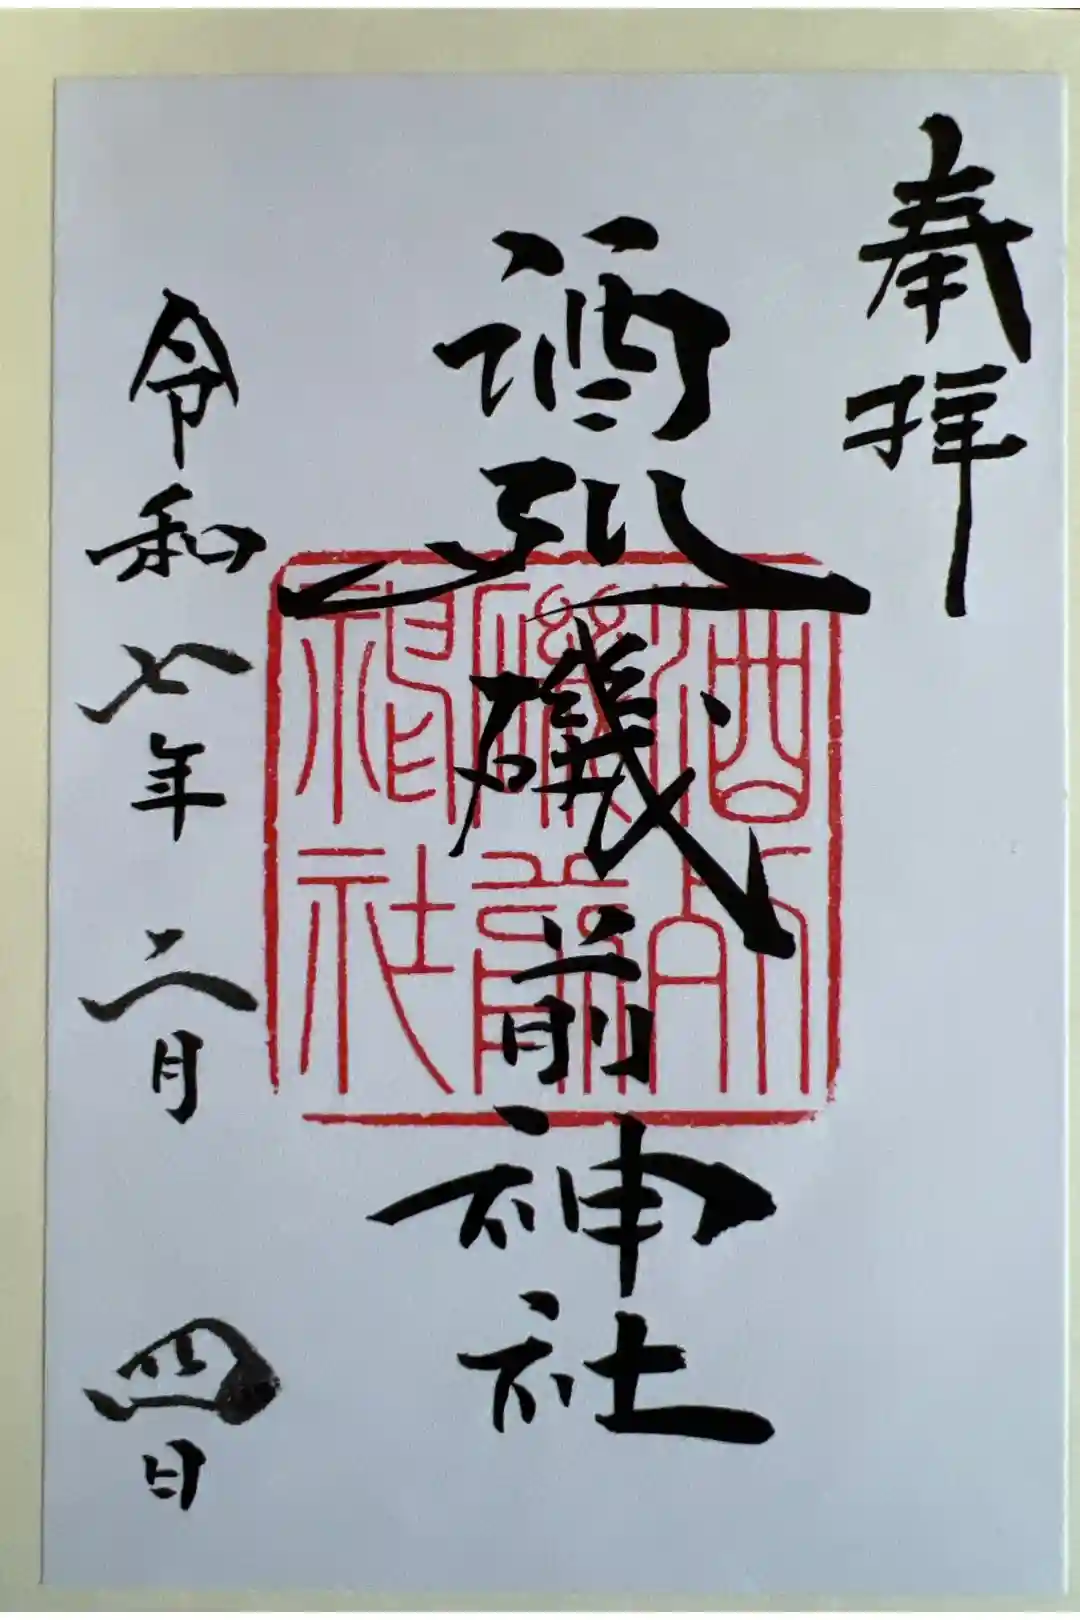 奉拝
酒列磯前神社
酒列
磯前
神社
令和七年二月四日